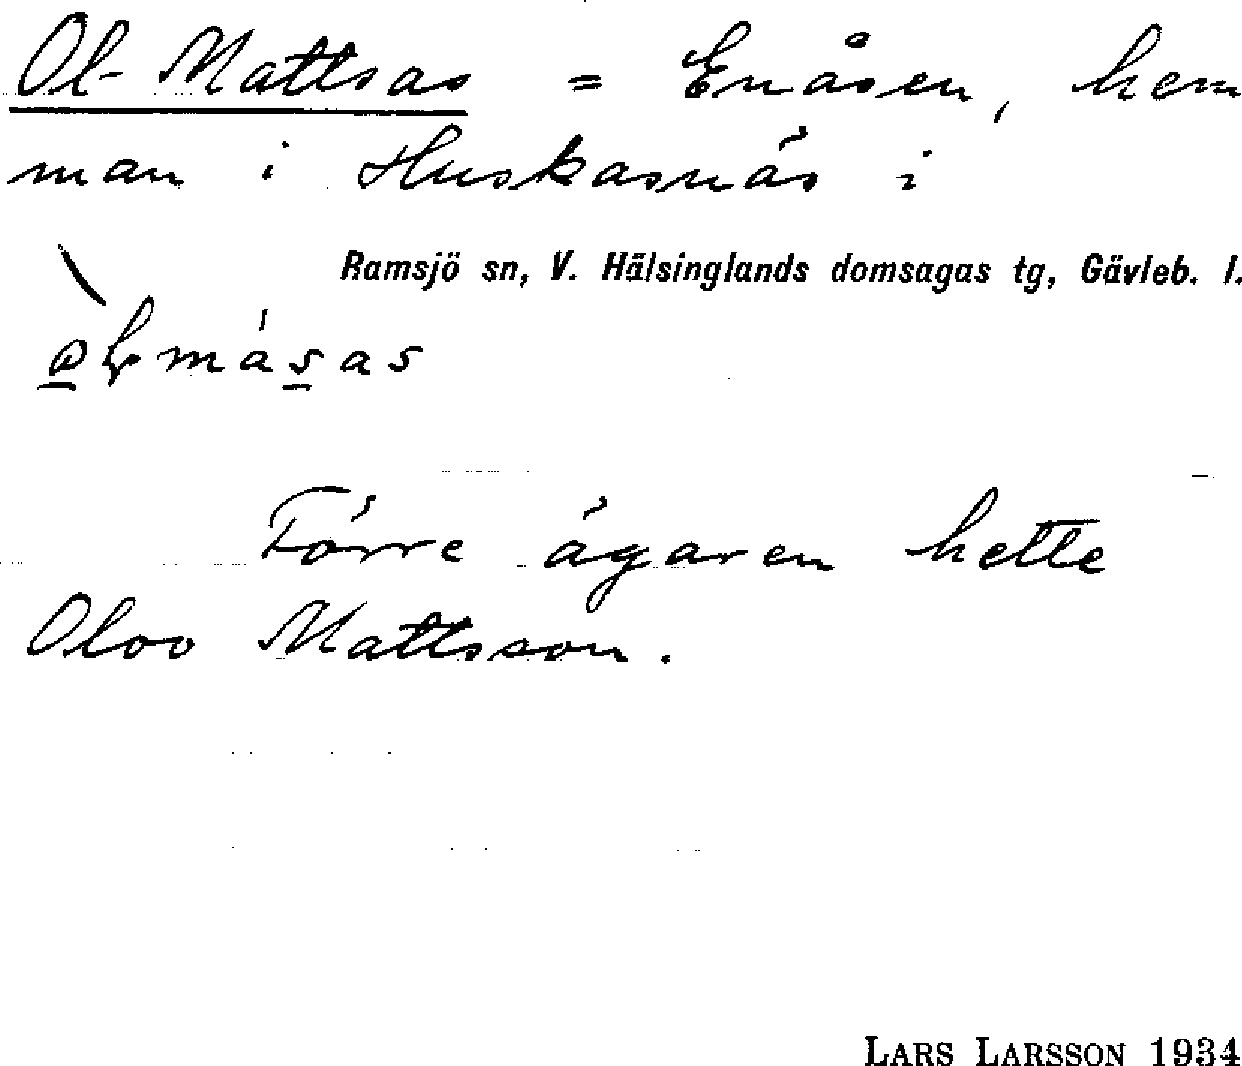 Ol-Mattsas = Enåsen, hem
man i Huskasnäs i
Ramsjö sn, V. Hälsinglands domsagas tg, Gävleb. l.
Förre ägaren hette
Olov Mattsson.
LARS LARSSON 1934